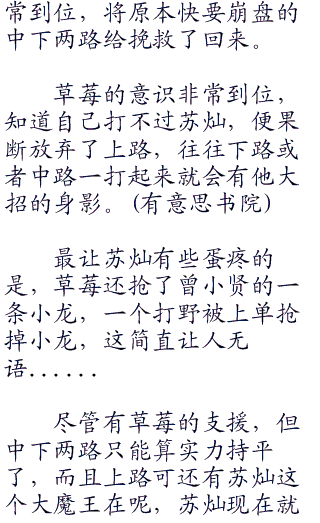 常到位，将原本快要崩盘的
中下两路给挽救了回来。
草莓的意识非常到位，
知道自己打不过苏灿，便果
断放弃了上路，往往下路或
者中路一打起来就会有他大
招的身影。（有意思书院）
最让苏灿有些蛋疼的
是，草莓还抢了曾小贤的一
条小龙，一个打野被上单抢
掉小龙，这简直让人无
语......
尽管有草莓的支援，但
中下两路只能算实力持平
了，而且上路可还有苏灿这
个大魔王在呢，苏灿现在就